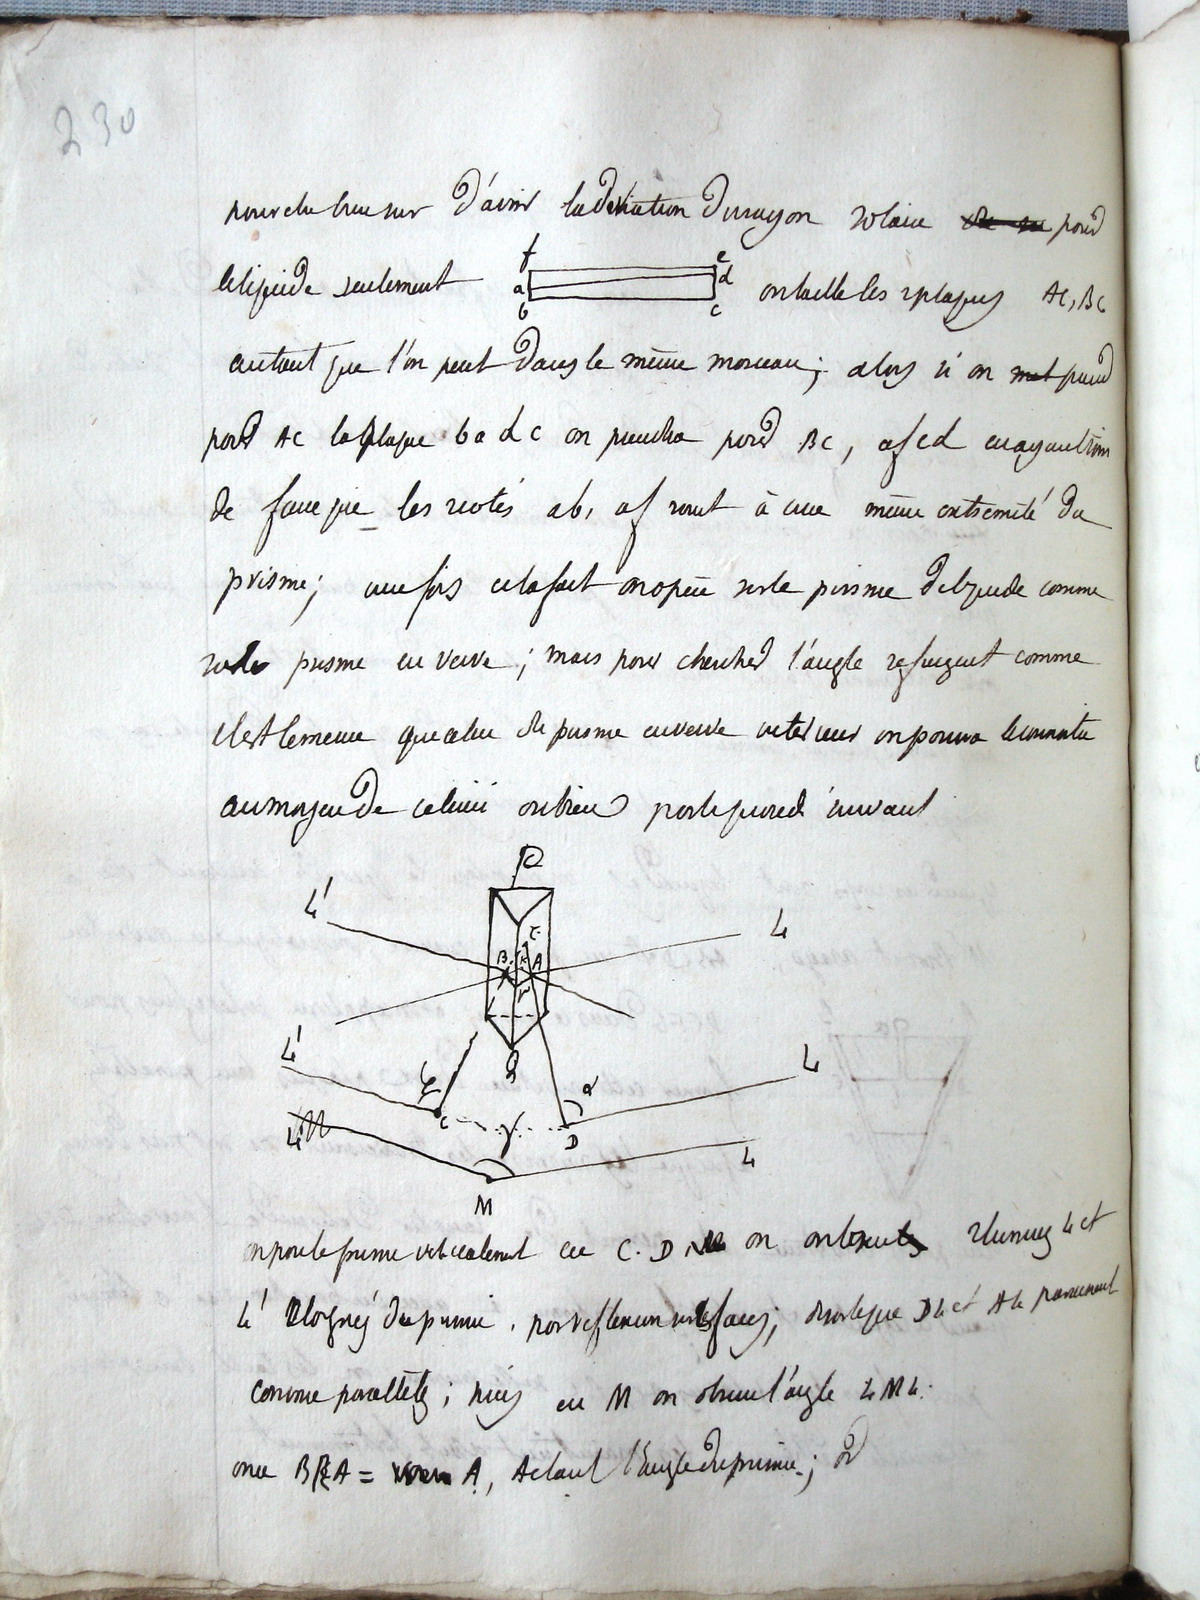 230
d'avoir la déviation du rayon solaire pour
le liquide seulement f e a d b c on taille les 2 plaques AC, BC
autant que l'on peut dans le même morceau; alors si on prend
pour AC la plaque b a d c on prendra pour BC, afed en ayant soin
de faire que les cotés ab, af sont à une même extremité du
prisme; une fois cela fait on opère sur le prisme de liquide comme
sur le prisme en verre; mais pour chercher l'angle refringent comme
il est le meme que celui du prisme en verre interieur on pourra le connaitre
au moyen de celui ci ou bien par le procedé suivant
P
L' L
B A
L' L
C D
L' L
M
on pose le prisme verticalement en C. D on observe les L et
L' éloignés du prisme. par reflexion sur les faces; de sorte que DL et AL
comme paralleles; puis en M on observe l'angle LML.
A, A etant l'angle du prisme; or